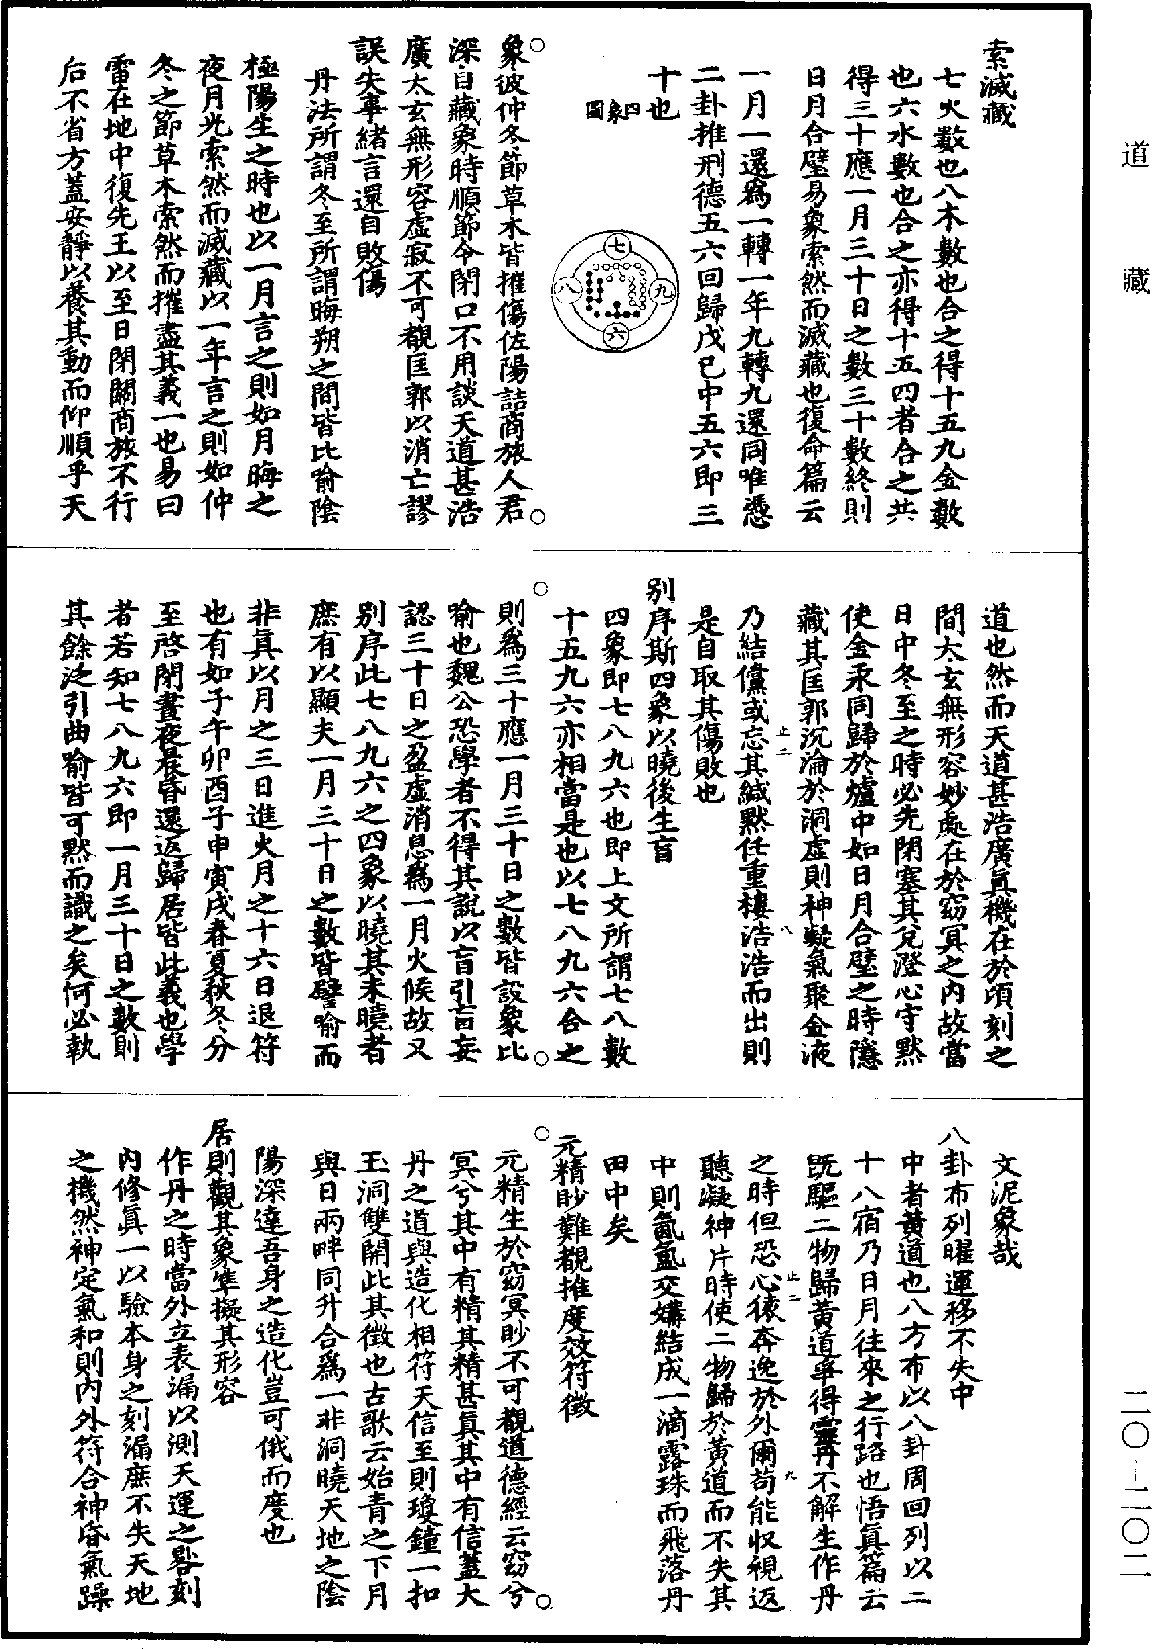 道藏
索滅藏
七火數也八木數也合之得十五九金數
也六水數也合之亦得十五四者合之共
得三十應一月三十日之數三十數終則
日月合璧易象索然而滅藏也復命篇云
一月一還爲一轉一年九轉九還同唯憑
二卦推刑德五六回歸戊巳中五六即三
十也
四象圖
七
八
九
六
象彼仲冬節草木皆摧傷佐陽詰商旅人君
深自藏象時順節令閉口不用談天道甚浩
廣太玄無形容虛寂不可覩匡郭以消亡謬
誤失事緒言還自敗傷
丹法所謂冬至所謂晦朔之間皆比喻陰
極陽生之時也以一月言之則如月晦之
夜月光索然而滅藏以一年言之則如仲
冬之節草木索然而摧盡其義一也易曰
雷在地中復先王以至日閉關商旅不行
后不省方蓋安靜以養其動而仰順乎天
道也然而天道甚浩廣眞機在於頃刻之
間太玄無形容妙處在於窈冥之內故當
日中冬至之時必先閉塞其兌澄心守黙
使金汞同歸於爐中如日月合璧之時隱
藏其匡郭沉淪於洞虛則神凝氣聚金液
乃結儻或忘其緘黙任重樓浩浩而出則
是自取其傷敗也
別序斯四象以曉後生盲
四象即七八九六也即上文所謂七八數
十五九六亦相當是也以七八九六合之
則爲三十應一月三十日之數皆設象比
喻也魏公恐學者不得其說以盲引盲妄
認三十日之盈虛消息爲一月火候故又
別序此七八九六之四象以曉其未曉者
庶有以顯夫一月三十日之數皆譬喻而
非眞以月之三日進火月之十六日退符
也有如子午卯酉子申寅戌春夏秋冬分
至啓閉晝夜晨昏還返歸居皆此義也學
者若知七八九六即一月三十日之數則
其餘泛引曲喻皆可黙而識之矣何必執
文泥象哉
八卦布列曜運移不失中
中者黃道也八方布以八卦周回列以二
十八宿乃日月往來之行路也悟眞篇云
旣驅二物歸黃道寧得靈丹不解生作丹
之時但恐心猿奔逸於外爾苟能收視返
聽凝神片時使二物歸於黃道而不失其
中則氤氳交媾結成一滴露珠而飛落丹
田中矣
元精眇難覩推度效符徵
元精生於窈冥眇不可覩道德經云窈兮
冥兮其中有精其精甚眞其中有信蓋大
丹之道與造化相符天信至則瓊鐘一扣
玉洞雙開此其徵也古歌云始青之下月
與日兩畔同升合爲一非洞曉天地之陰
陽深達吾身之造化豈可俄而度也
居則觀其象準擬其形容
作丹之時當外立表漏以測天運之晷刻
內修眞一以驗本身之刻漏庶不失天地
之機然神定氣和則內外符合神昏氣躁
二〇-二〇二